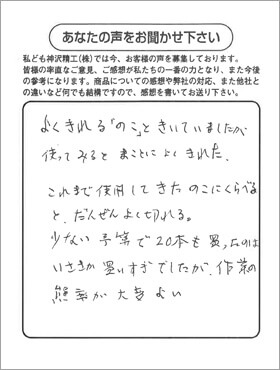 あなたの声をお聞かせ下さい
私ども神沢精工(株)では今、お客様の声を募集しております。
皆様の率直なご意見、ご感想が私たちの一番の力となり、また今後
の参考になります。商品についての感想や弊社の対応、また他社と
の違いなど何でも結構ですので、感想を書いてお送り下さい。
よくきれる「のこ」ときいていましたが
使ってみると まことによくきれた。
これまで使用してきたのこにくらべる
と、だんぜんよく切れる。
少ない予算で20本も買ったのは
いささか買いすぎでしたが、作業の
能率が大変よい